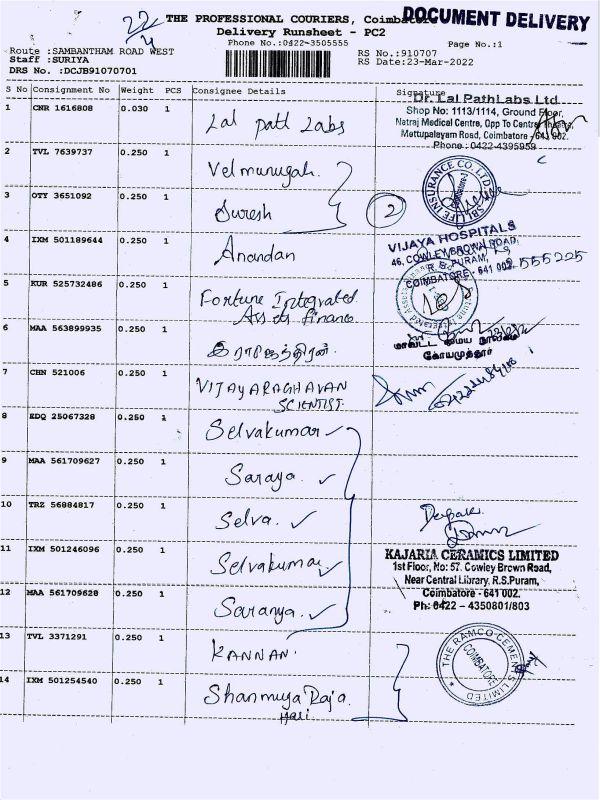 22
4
THE PROFESSIONAL COURIERS, Coimbatore
DOCUMENT DELIVERY
Delivery Runsheet - PC2
Phone No.:0422-3505555
Page No.:1
Route :SAMBANTHAM ROAD WEST
RS No.:910707
Staff :SURIYA
RS Date:23-Mar-2022
DRS No. :DCJB91070701
S No Consignment No Weight PCS Consignee Details Signature
1 CNR 1616808 0.030 1 Lal path Labs
Dr. Lal PathLabs Ltd
Shop No: 1113/1114, Ground Floor,
Natraj Medical Centre, Opp To Central Theatre,
Mettupalayam Road, Coimbatore - 641 002.
Phone : 0422-4395959
2 TVL 7639737 0.250 1 Velmurugah.
SBI LIFE INSURANCE CO. LTD.
3 OTY 3651092 0.250 1 Suresh
2
4 IXM 501189644 0.250 1 Anandan
VIJAYA HOSPITALS
46, COWLEY BROWN ROAD,
R.S. PURAM,
COIMBATORE - 641 002. 2555225
5 KUR 525732486 0.250 1 Fortune Integrated
Assets Finance
6 MAA 563899935 0.250 1 இராஜேந்திரன்.
மாவட்ட மைய நூலகம்
கோயமுத்தூர்
7 CHN 521006 0.250 1 VIJAYARAGHAVAN
SCIENTIST.
8 EDQ 25067328 0.250 1 Selvakumar ✓
9 MAA 561709627 0.250 1 Saraya. ✓
10 TRZ 56884817 0.250 1 Selva. ✓
11 IXM 501246096 0.250 1 Selvakumar ✓
KAJARIA CERAMICS LIMITED
1st Floor, No: 57, Cowley Brown Road,
Near Central Library, R.S.Puram,
Coimbatore - 641 002.
Ph: 0422 - 4350801/803
12 MAA 561709628 0.250 1 Saranya. ✓
13 TVL 3371291 0.250 1 KANNAN.
THE RAMCO CEMENTS LIMITED
COIMBATORE
14 IXM 501254540 0.250 1 Shanmuga Raja
Hari